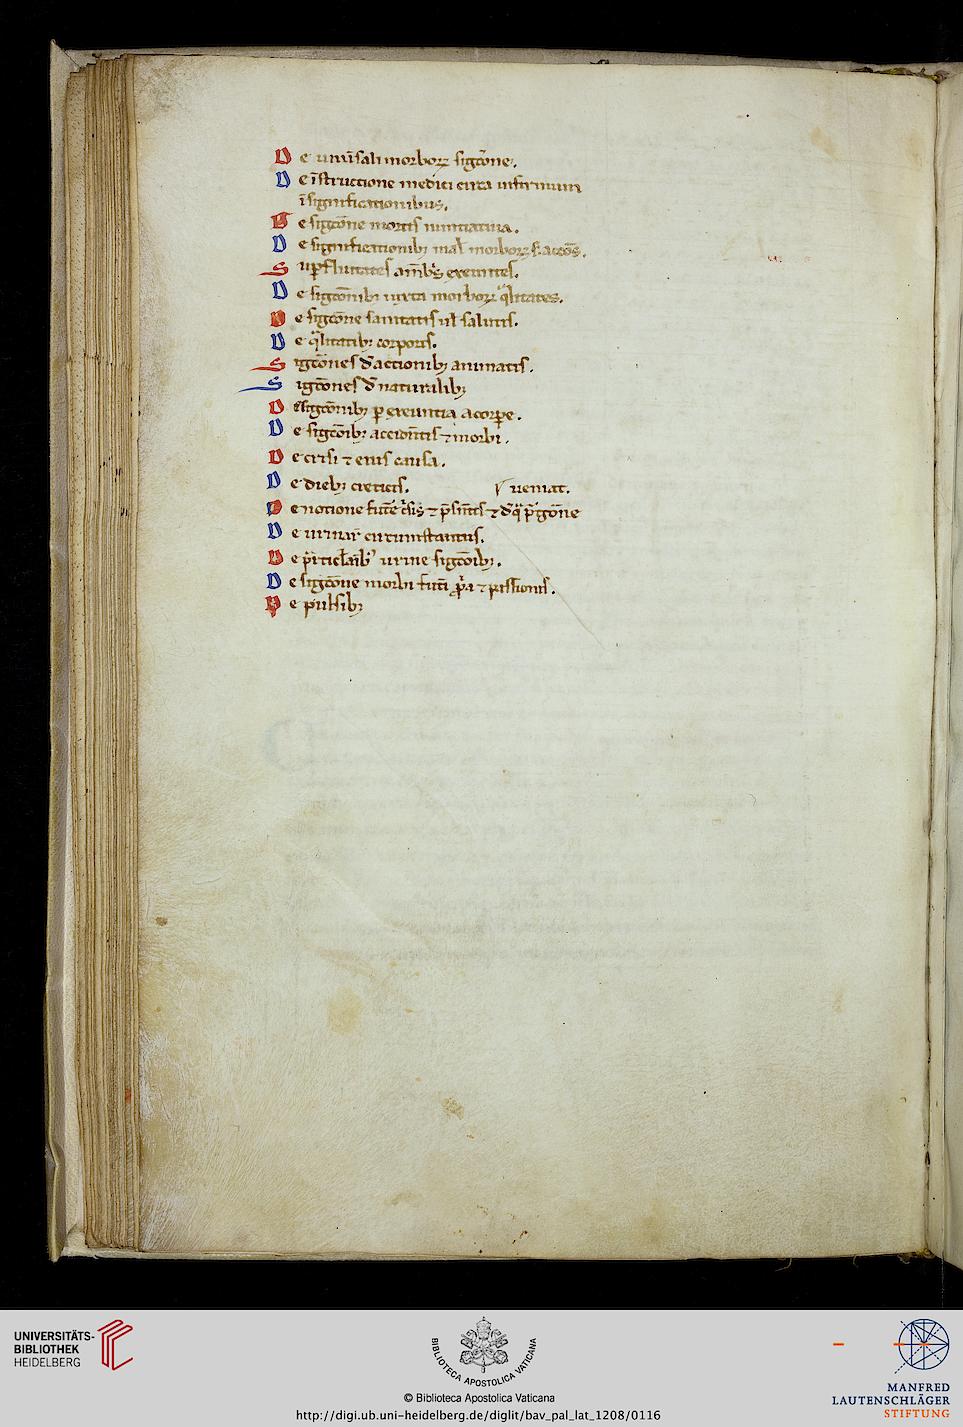 De uniũsali morboꝝ sigc̃one.
De ĩstructione medici circa infirmum
ĩ significationibus.
De sigc̃one mortis nuntiatiua.
De significationibꝫ mal morboꝝ
Suꝑfluitates exeuntes.
De sigc̃onibꝫ iuxta morboꝝ q̃litates.
De sigc̃one sanitatis ul salutis.
De q̃litatibꝫ corporis.
Sigc̃ones d̃ actionibꝫ animatis.
Sigc̃ones d̃ naturalibꝫ
De sigc̃onibꝫ ꝑ exeuntia a corꝑe.
De sigc̃oibꝫ accidñtis ⁊ morbi.
De crisi ⁊ eius causa.
De diebꝫ creticis. ueniat.
De notione fut̃e c̃sis ⁊ p̃sñtis ⁊ d̃ q̃
De urinaꝝ circumstantiis.
De urine sigc̃oibꝫ.
De sigc̃one morbi fut̃i ⁊ passionis.
De pulsibꝫ
UNIVERSITÄTS-
BIBLIOTHEK
HEIDELBERG
BIBLIOTECA APOSTOLICA VATICANA
© Biblioteca Apostolica Vaticana
http://digi.ub.uni-heidelberg.de/diglit/bav_pal_lat_1208/0116
MANFRED
LAUTENSCHLÄGER
STIFTUNG